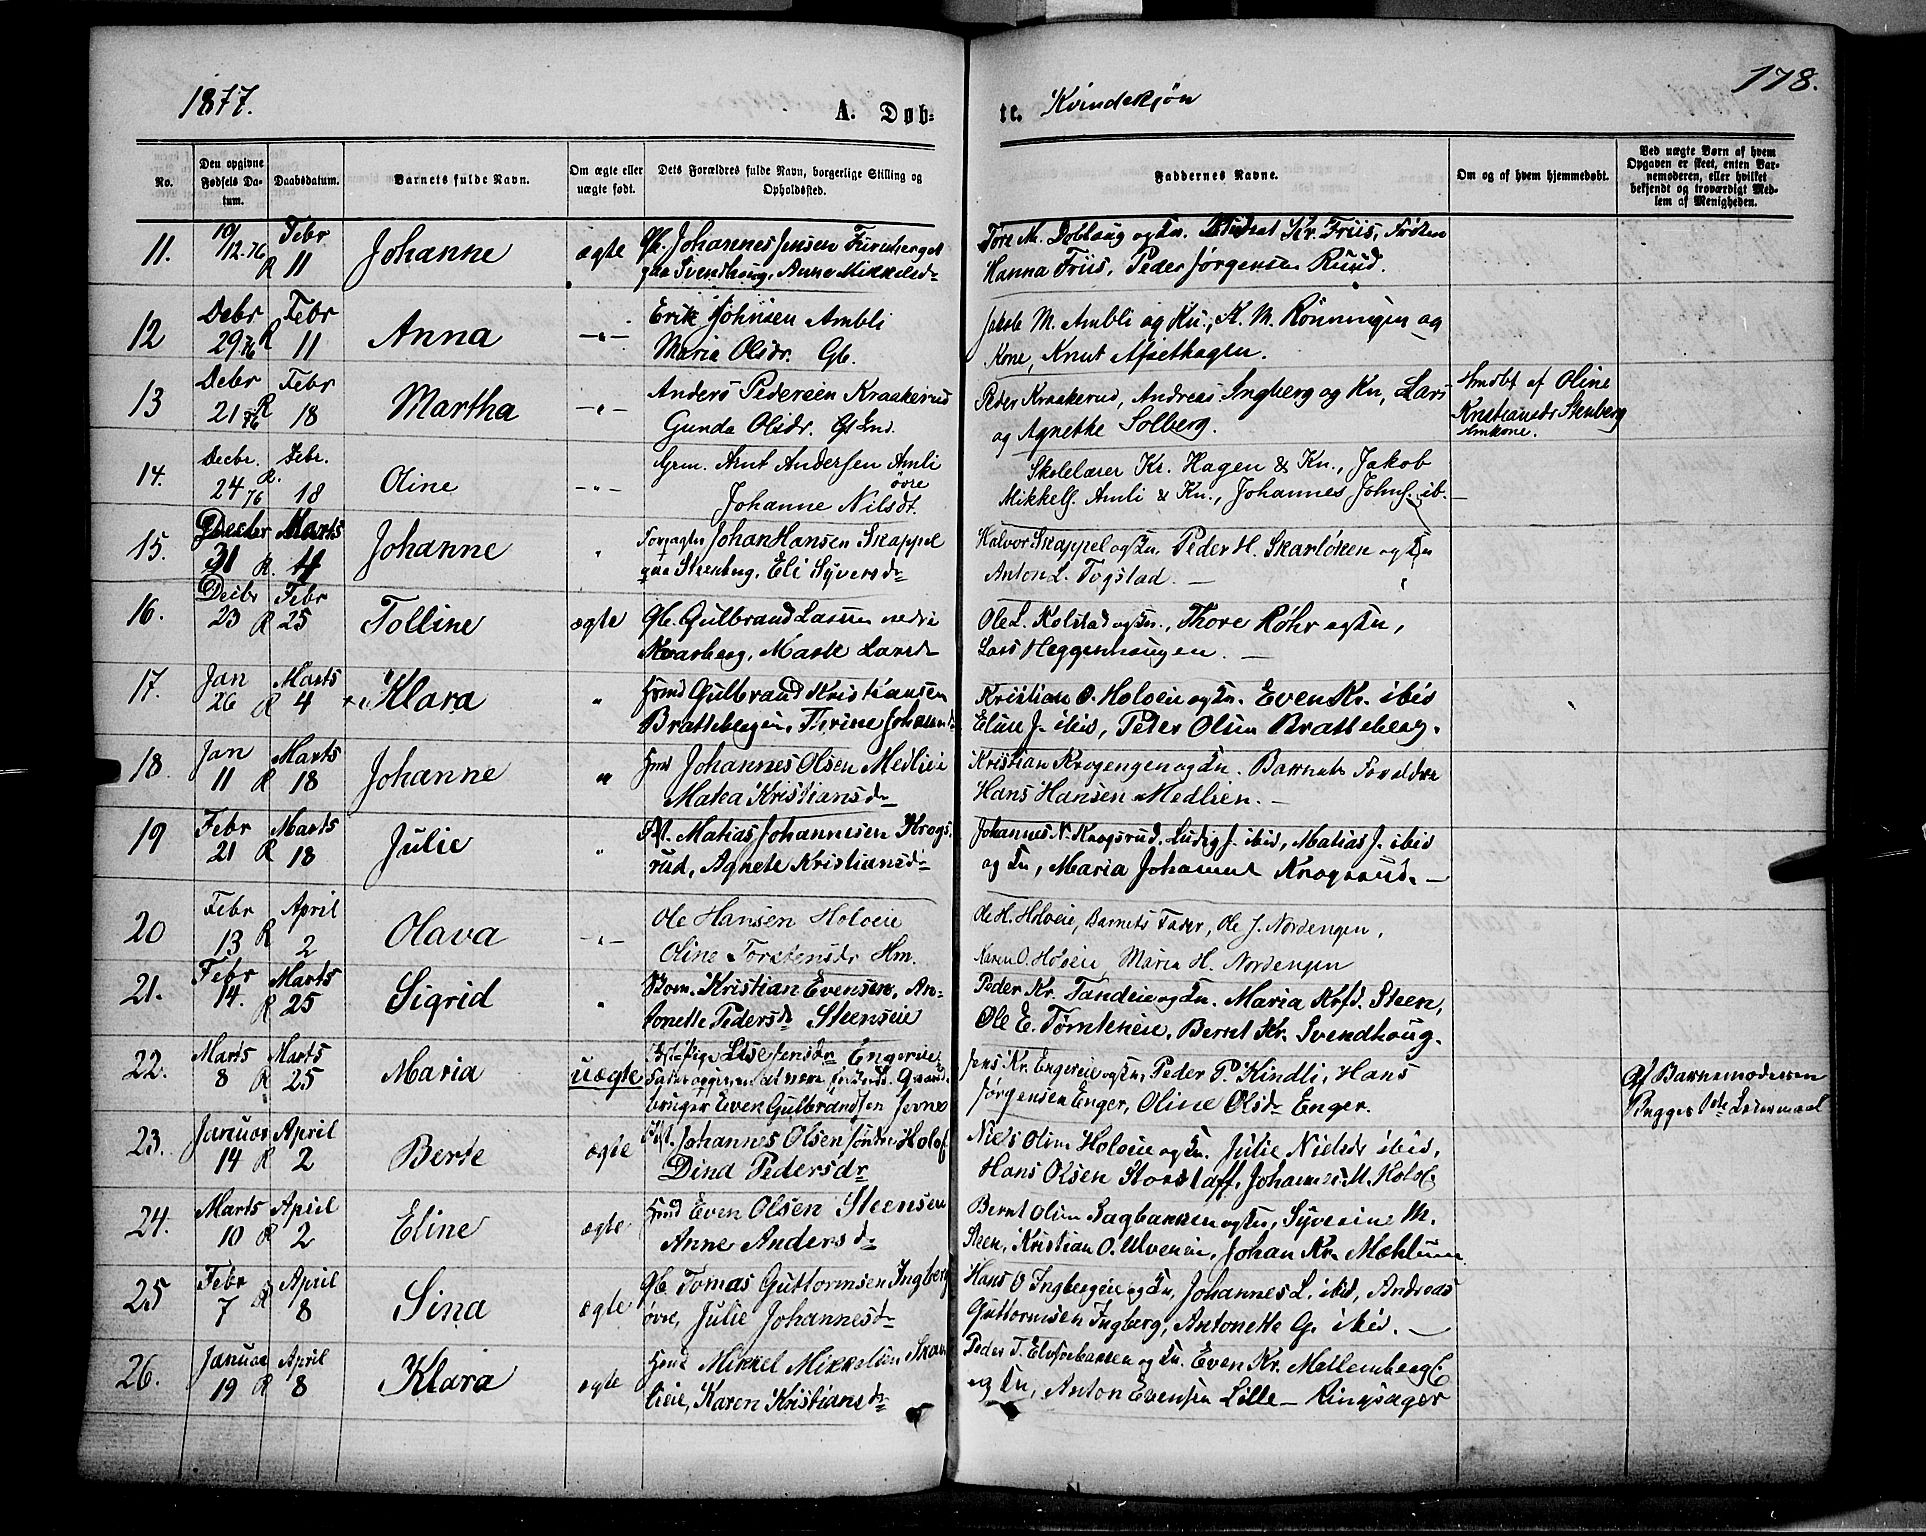 1877.
A. Døb-
te. Kvindekjøn
178.
No.
Den opgivne Fødsels Datum.
Daabsdatum.
Barnets fulde Navn.
Om ægte eller uægte født.
Dets Forældres fulde Navn, borgerlige Stilling og Opholdssted.
Faddernes Navne.
Om og af hvem hjemmedøbt.
Ved uægte Børn af hvem Opgaven er skeet, enten Barnemoderen, eller hvilket bekjendt og troværdigt Medlem af Menigheden.
11. 10/12.76 R Febr 11 Johanne ægte Gb. Johannes Jensen
paa Svendhoug, Anne Mikkelsd
Tore M. Doblaug og Kn. Kr. Friis,
Hanna Friis, Peder Jørgensen Ruud.
12 Debr 29 76 R Febr 11 Anna -"- Erik Johnsen Ambli
Maria Olsdr. Gb.
Jakob M. Ambli og Kn., K. M. Rönningen og
Kone, Knut Afsethagen.
13 Debr 21 76 R Febr 18 Martha -"- Anders Pedersen Kraakerud
Gunda Olsdr.
Peder Kraakerud, Andreas Ingberg og Kn, Lars
og Agnethe Solberg.
af Oline
Kristiansdr Stenberg
14. Decbr. 24 76 R. Febr. 18 Oline -"- Arnt Andersen Amli
övre
Johanne Nilsdt.
Skolelærer Kr. Hagen & Kn., Jakob
Mikkels. Amli & Kn., Johannes Johns. ib.
15. Decbr 31 R. Marts 4 Johanne " Johan Hansen Skappel
paa Steenberg, Eli Syversdr
Halvor Skappel og Kn. Peder H. Skarløken og Kn
Anton L. Togstad. -
16. Decbr 23 R Febr 25 Tolline ægte Gb. Gulbrand Larsen nedre
Marte Larsd
Ole L. Kolstad og Kn., Thore Röhr og Kn,
Lars Heggenhaugen. -
17. Jan 26 R Marts 4 Klara " Hmd Gulbrand Kristiansen
Bratteberg, Therine Johansd
Kristian O. Holveie og Kn. Even Kr. ibid
Eline J. ibid, Peder Olsen Bratteberg.
18. Jan 11 R Marts 18 Johanne " Hmd Johannes Olsen Medlien
Matea Kristiansd
Kristian Krogengen og Kn. Barnets Forældre
Hans Hansen Medlien. -
19 Febr 21 R Marts 18 Julie " Matias Johannesen Krogs
rud, Agnete Kristiansd
Johannes N. Krogsrud, Ludvig J. ibid, Matias J. ibid
og Kn, Maria Johannesd Krogsrud. -
20 Febr 13 R April 2 Olava -"- Ole Hansen Holveie
Oline Torstensdr Hm.
Ole H. Holveie, Barnets Fader, Ole J. Nordengen,
Karen O. Holveie, Maria H. Nordengen
21. Febr 14. R Marts 25 Sigrid " Kristian Evensen, An-
tonette Pedersd Steenseie
Peder Kr. Tandeie og Kn. Maria Steen,
Ole E. Törnteneie, Bernt Kr. Svendhoug.
22. Marts 8 R Marts 25 Maria uægte Pige Lise Jensdr Engereie
bruger Even Gulbrandsen Jevne
Jens Kr. Engereie og Kn, Peder P. Kindli, Hans
Jørgensen Enger, Oline Olsdr Enger.
Af Barnemoderen
23. Januar 14 R April 2 Berte ægte Johannes Olsen søndre Holos
Dina Pedersdr
Niels Olsen Holveie og Kn. Julie Nielsdr ibid,
Hans Olsen Storstaff, Johannes M. Holos.
24. Marts 10 R April 2 Eline ægte Hmd Even Olsen Steensen
Anne Andersd
Bernt Olsen Sagbakken og Kn, Syverine M.
Steen, Kristian O. Ulveneie, Johan Kr. Mæhlum
25 Febr 7 R April 8 Sina ægte Gb. Tomas Guttormsen Ingberg
övre, Julie Johannesd
Hans O Ingbergeie og Kn, Johannes L. ibid, Andreas
Guttormsen Ingberg, Antonette G. ibid. -
26. Januar 19 R April 8 Klara ægte Hmd Mikkel Mikkelsen
Karen Kristiansd
Peder T. og Kn. Even Kr. Mellemberg
og Kn, Anton Evensen Lille - Ringsager